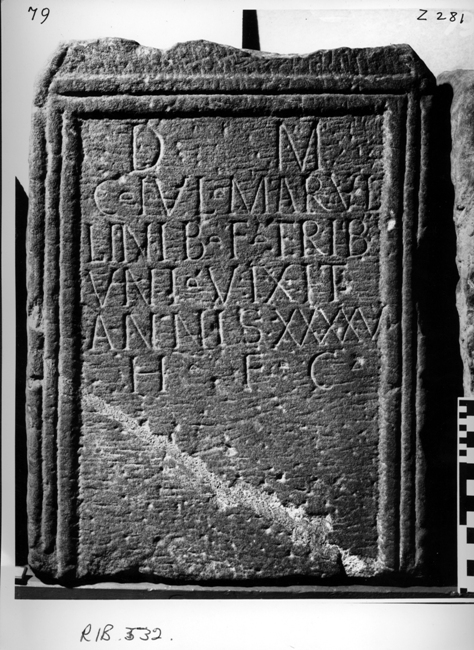 79 Z 281
D M
C · IVL · MARVL
LINI B · F · TRIB
VNI · VIXIT
ANNIS · XXXXV
H · F · C ·
RIB 532.